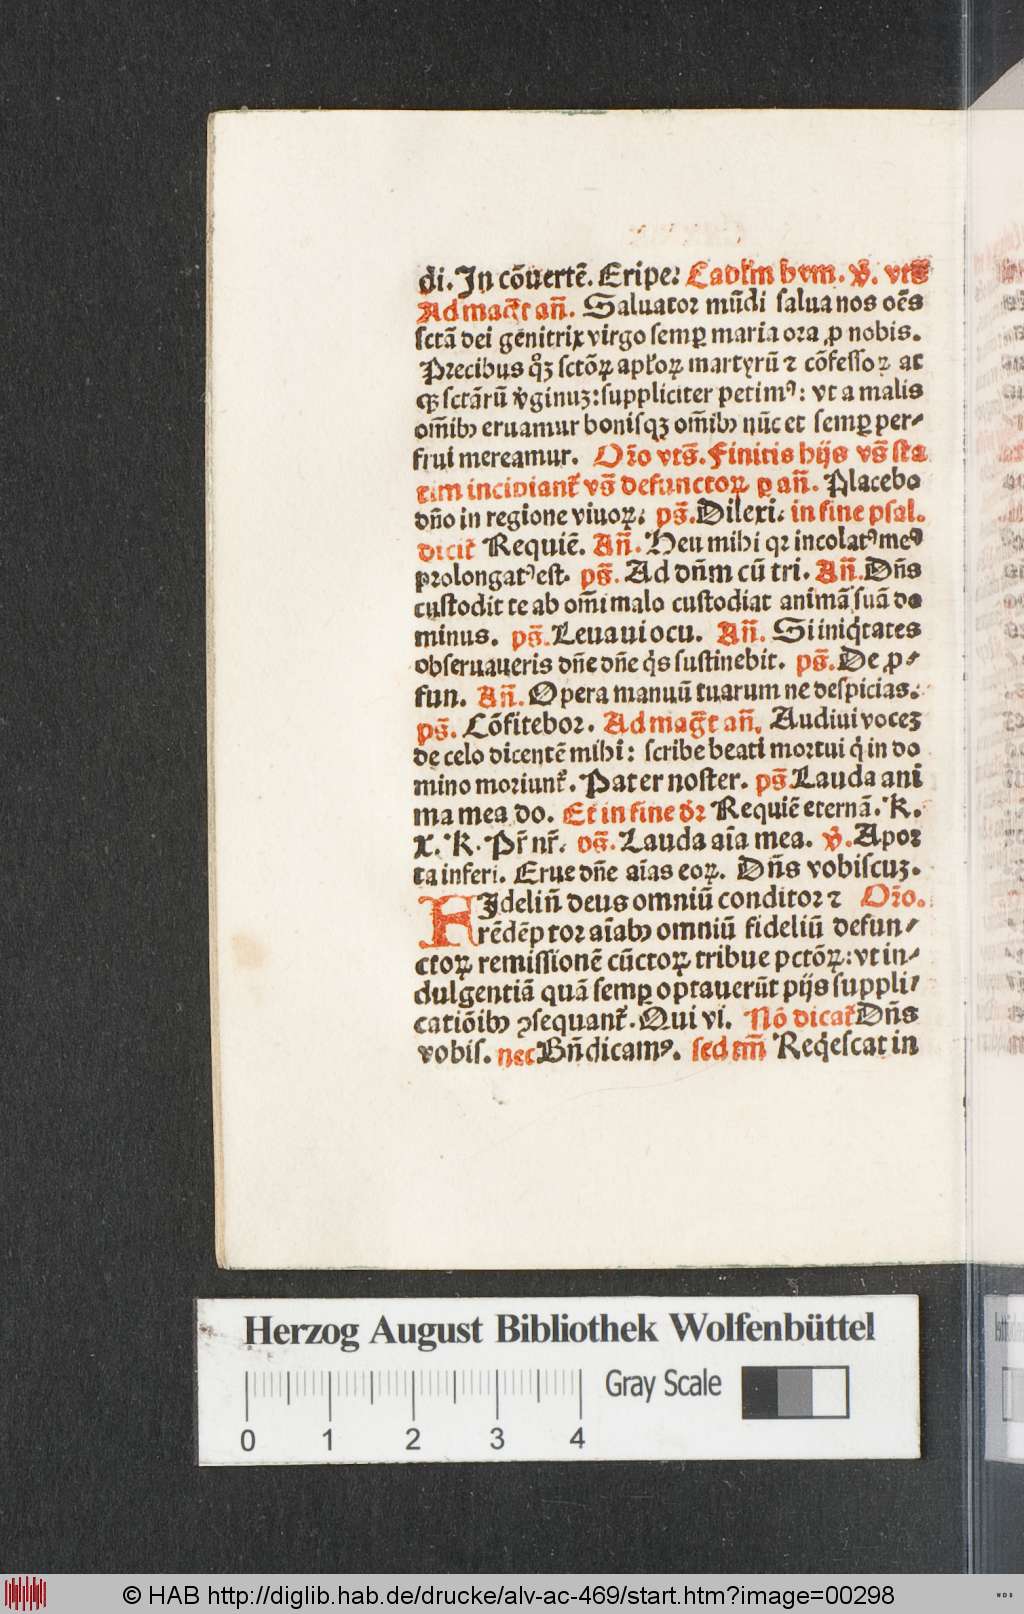 di. In cõuertẽ. Eripe: Caplm hym. v̉. vts̃
Ad mag̃t añ. Saluator mũdi salua nos oẽs
sctã dei genitrix virgo semꝑ maria ora ꝓ nobis.
Precibus q̊ꝫ sctõꝝ apłoꝝ martyrũ ⁊ cõfessoꝝ ac
qꝫ sctãrũ v̉ginuꝫ: suppliciter petimꝰ: vt a malis
om̃ibꝰ eruamur bonisqꝫ om̃ibꝰ nũc et semꝑ per-
frui mereamur. Oro vts̃. Finitis hijs vs̃ sta
tim incipiant᷑ vs̃ defunctoꝝ ꝑ añ. Placebo
dño in regione viuoꝝ: ps̃. Dilexi: in fine psal.
dicit᷑ Requiẽ. Añ. Heu mihi qꝛ incolatꝰ meꝰ
prolongatꝰ est. ps̃. Ad dñm cũ tri. Añ. Dñs
custodit te ab om̃i malo custodiat animã suã do
minus. ps̃. Leuaui ocu. Añ. Si iniq̇tates
obseruaueris dñe dñe q̇s sustinebit. ps̃. De ꝓ-
fun. Añ. Opera manuũ tuarum ne despicias.
ps̃. Cõfitebor. Ad mag̃t añ. Audiui voceꝫ
de celo dicentẽ mihi: scribe beati mortui q̇ in do
mino moriunt᷑. Pater noster. ps̃. Lauda ani
ma mea do. Et in fine dr̃ Requiẽ eternã. K.
X. K. Pr̃ nr̃. ps̃. Lauda aĩa mea. v̉. A por
ta inferi. Erue dñe aĩas eoꝝ. Dñs vobiscuꝫ.
FIdeliũ deus omniũ conditor ⁊ Oro.
rẽdẽptor aĩabꝰ omniũ fideliũ defun-
ctoꝝ remissionẽ cũctoꝝ tribue pctõꝝ: vt in-
dulgentiã quã semꝑ optauerũt pijs suppli-
catiõibꝰ ꝯsequant᷑. Qui vi. Nõ dicat᷑ Dñs
vobis. nec Bñdicamꝰ. sed tm̃ Req̇escat in
Herzog August Bibliothek Wolfenbüttel
Gray Scale
0 1 2 3 4
© HAB http://diglib.hab.de/drucke/alv-ac-469/start.htm?image=00298